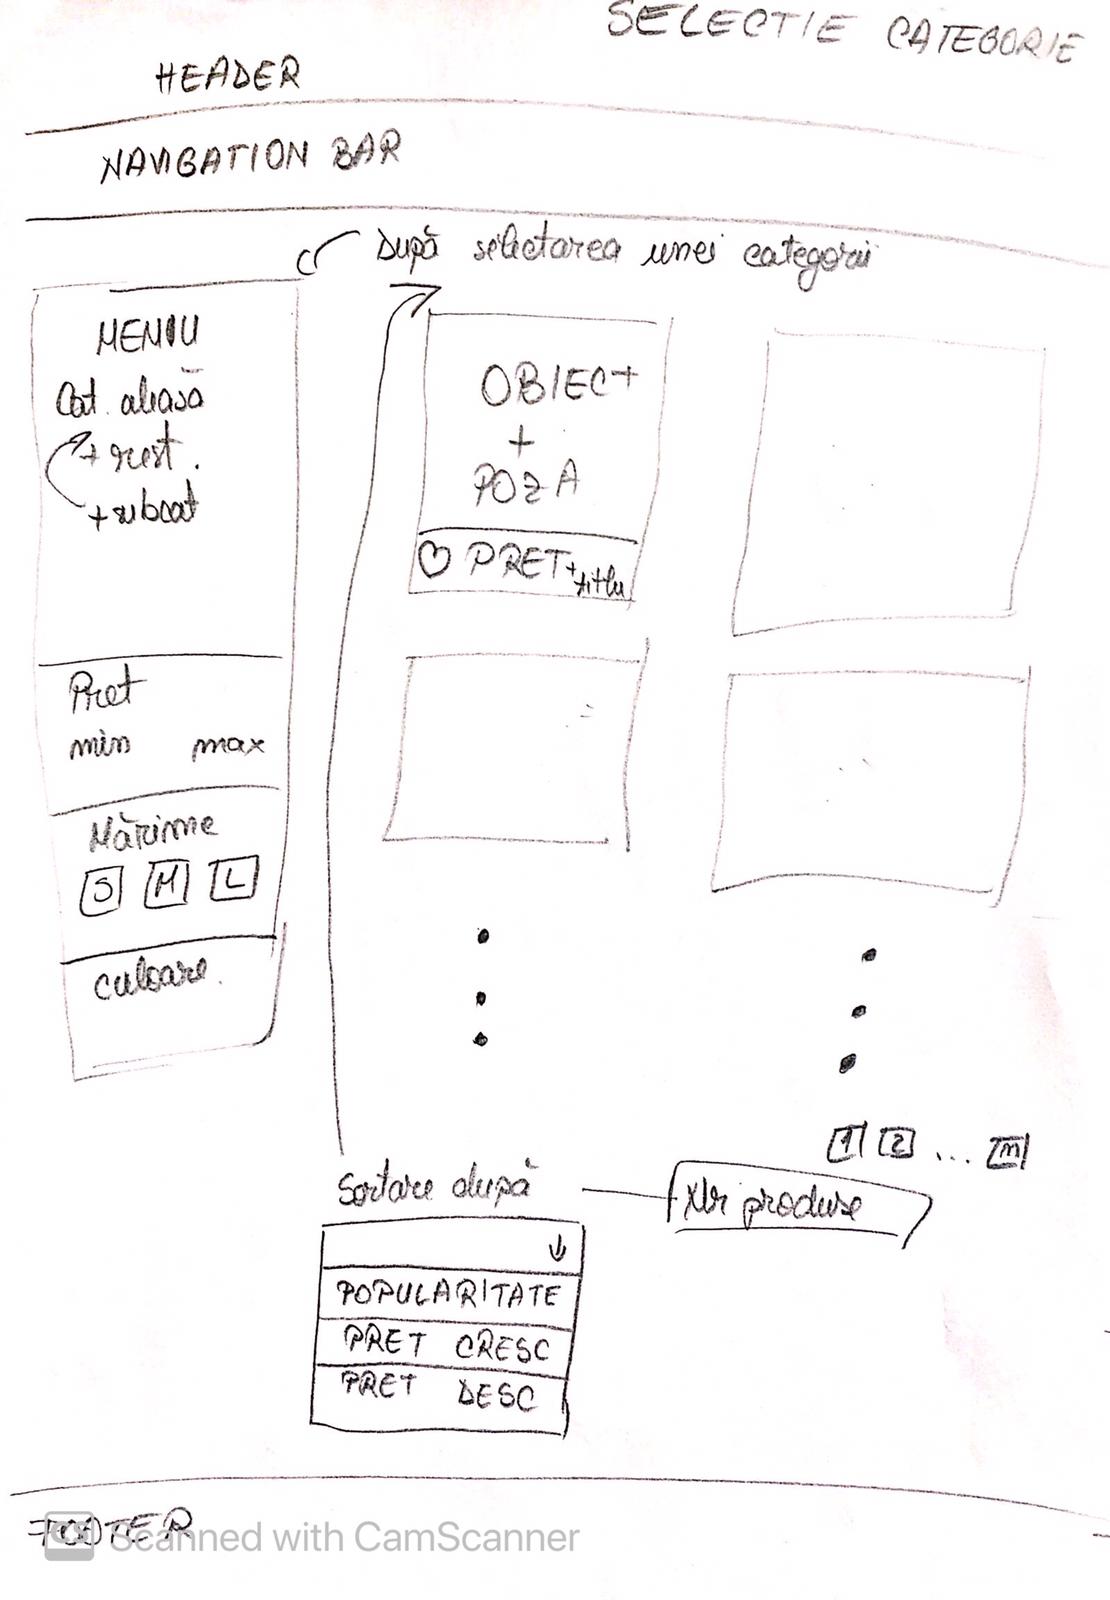 SELECTIE CATEGORIE
HEADER
NAVIGATION BAR
După selectarea unei categorii
MENIU
Cat. aleasă
+ rest.
+ subcat
Pret
min max
Mărime
S M L
culoare.
OBIECT
+
POZA
♡ PRET + titlu
1 2 ... n
Sortare după
Nr produse
↓
POPULARITATE
PRET CRESC
PRET DESC
FOOTER
CS Scanned with CamScanner